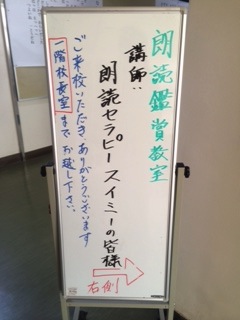 朗読鑑賞教室
講師:
朗読セラピースイミーの皆様
ご来校いただきありがとうございます
一階校長室までお越し下さい。
右側